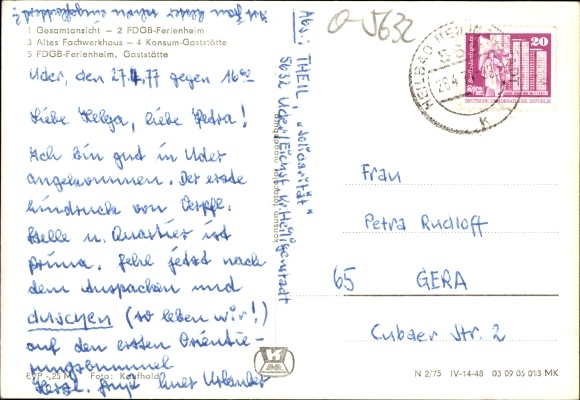 1 Gesamtansicht — 2 FDGB-Ferienheim
3 Altes Fachwerkhaus — 4 Konsum-Gaststätte
5 FDGB-Ferienheim, Gaststätte
Uder, den 27.4.77 gegen 16
Liebe Helga, liebe Petra!
Ich bin gut in Uder
angekommen. Der erste
Eindruck von Verpfle-
Stelle u. Quartier ist
prima. Gehe jetzt nach
dem Auspacken und
duschen (so leben wir!)
auf den ersten Orientie-
rungsbummel
Herzl. Grüße Euer Urlauber
EVP -,25 M Foto: Kaufhold
Abs.: THEIL, "Solidarität"
5632 Uder/Eichsf. Kr. Heiligenstadt
O-5632
HEILBAD HEILIGENSTADT
28.4.
20
DEUTSCHE DEMOKRATISCHE REPUBLIK
Frau
Petra Rudloff
65 GERA
Cubaer Str. 2
N 2/75 IV-14-48 05 09 05 013 MK